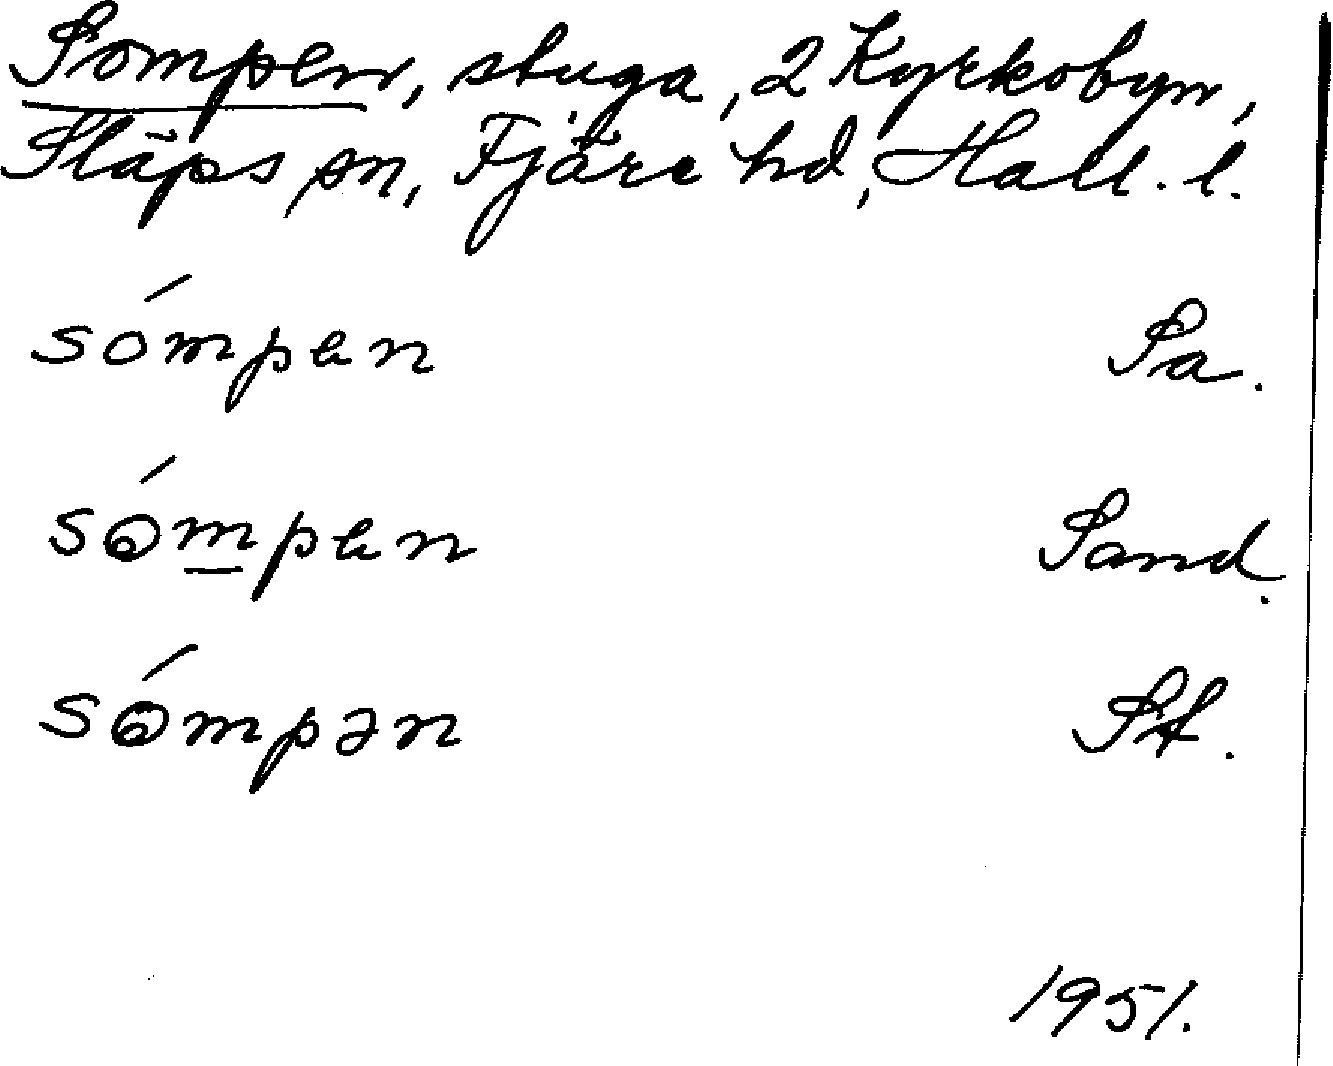 Sompen, stuga, 2 Kyrkobyn,
Släps sn, Fjäre hd, Hall. l.
sómpen Sa.
sómpen Sand.
sómpən St.
1951.